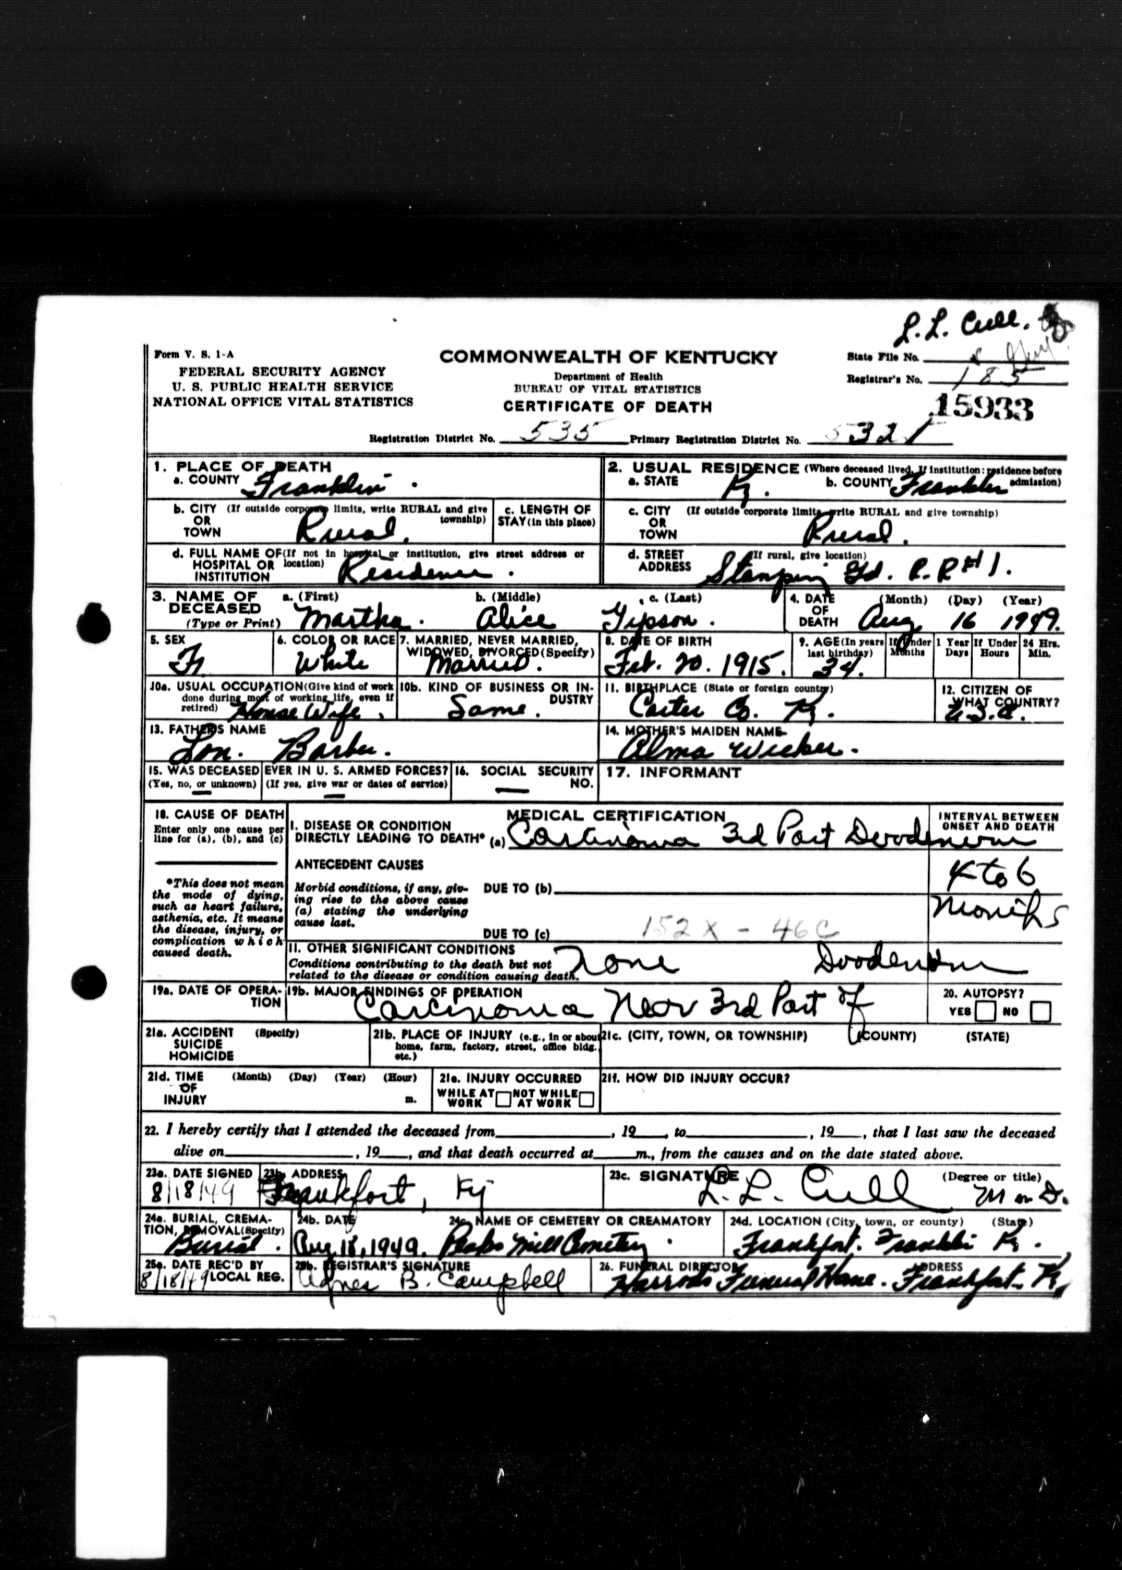 L. L. Cull.
Form V. S. 1-A
FEDERAL SECURITY AGENCY
U. S. PUBLIC HEALTH SERVICE
NATIONAL OFFICE VITAL STATISTICS
COMMONWEALTH OF KENTUCKY
Department of Health
BUREAU OF VITAL STATISTICS
CERTIFICATE OF DEATH
State File No.
Registrar's No. 185
15933
Registration District No. 535 Primary Registration District No. 5321
1. PLACE OF DEATH
a. COUNTY Franklin.
2. USUAL RESIDENCE (Where deceased lived. If institution: residence before admission)
a. STATE Ky. b. COUNTY Franklin
b. CITY (If outside corporate limits, write RURAL and give township)
OR
TOWN Rural.
c. LENGTH OF
STAY (in this place)
c. CITY (If outside corporate limits, write RURAL and give township)
OR
TOWN Rural.
d. FULL NAME OF (If not in hospital or institution, give street address or location)
HOSPITAL OR
INSTITUTION Residence.
d. STREET (If rural, give location)
ADDRESS Stamping Gd. R.R#1.
3. NAME OF DECEASED (Type or Print)
a. (First) Martha. b. (Middle) Alice c. (Last) Gipson.
4. DATE OF DEATH (Month) (Day) (Year)
Aug 16 1949.
5. SEX
F.
6. COLOR OR RACE
White
7. MARRIED, NEVER MARRIED, WIDOWED, DIVORCED (Specify)
Married.
8. DATE OF BIRTH
Feb. 20. 1915.
9. AGE (In years last birthday)
34.
If Under 1 Year Months Days
If Under 24 Hrs. Hours Min.
10a. USUAL OCCUPATION (Give kind of work done during most of working life, even if retired)
House Wife.
10b. KIND OF BUSINESS OR INDUSTRY
Same.
11. BIRTHPLACE (State or foreign country)
Carter Co. Ky.
12. CITIZEN OF WHAT COUNTRY?
U.S.A.
13. FATHER'S NAME
Lon. Barber.
14. MOTHER'S MAIDEN NAME
Alma Wicker.
15. WAS DECEASED EVER IN U. S. ARMED FORCES?
(Yes, no, or unknown) (If yes, give war or dates of service)
16. SOCIAL SECURITY NO.
17. INFORMANT
18. CAUSE OF DEATH
Enter only one cause per line for (a), (b), and (c)
*This does not mean the mode of dying, such as heart failure, asthenia, etc. It means the disease, injury, or complication which caused death.
MEDICAL CERTIFICATION
INTERVAL BETWEEN ONSET AND DEATH
I. DISEASE OR CONDITION DIRECTLY LEADING TO DEATH* (a) Carcinoma 3rd Part Duodenum
ANTECEDENT CAUSES
Morbid conditions, if any, giving rise to the above cause (a) stating the underlying cause last.
DUE TO (b)
4 to 6
Months
DUE TO (c)
152X - 46C
II. OTHER SIGNIFICANT CONDITIONS
Conditions contributing to the death but not related to the disease or condition causing death.
None Duodenum
19a. DATE OF OPERATION
19b. MAJOR FINDINGS OF OPERATION
Carcinoma Near 3rd Part of
20. AUTOPSY?
YES NO
21a. ACCIDENT (Specify)
SUICIDE
HOMICIDE
21b. PLACE OF INJURY (e.g., in or about home, farm, factory, street, office bldg., etc.)
21c. (CITY, TOWN, OR TOWNSHIP) (COUNTY) (STATE)
21d. TIME OF INJURY (Month) (Day) (Year) (Hour) m.
21e. INJURY OCCURRED
WHILE AT WORK NOT WHILE AT WORK
21f. HOW DID INJURY OCCUR?
22. I hereby certify that I attended the deceased from , 19 , to , 19 , that I last saw the deceased
alive on , 19 , and that death occurred at m., from the causes and on the date stated above.
23a. DATE SIGNED
8/18/49
23b. ADDRESS
Frankfort, Ky
23c. SIGNATURE (Degree or title)
L. L. Cull M D.
24a. BURIAL, CREMATION, REMOVAL (Specify)
Burial.
24b. DATE
Aug 18, 1949.
24c. NAME OF CEMETERY OR CREAMATORY
Peaks Mill Cemetery.
24d. LOCATION (City, town, or county) (State)
Frankfort. Franklin Ky.
25a. DATE REC'D BY LOCAL REG.
8/18/49
25b. REGISTRAR'S SIGNATURE
Agnes B. Campbell
26. FUNERAL DIRECTOR ADDRESS
Harrods Funeral Home. Frankfort. Ky,